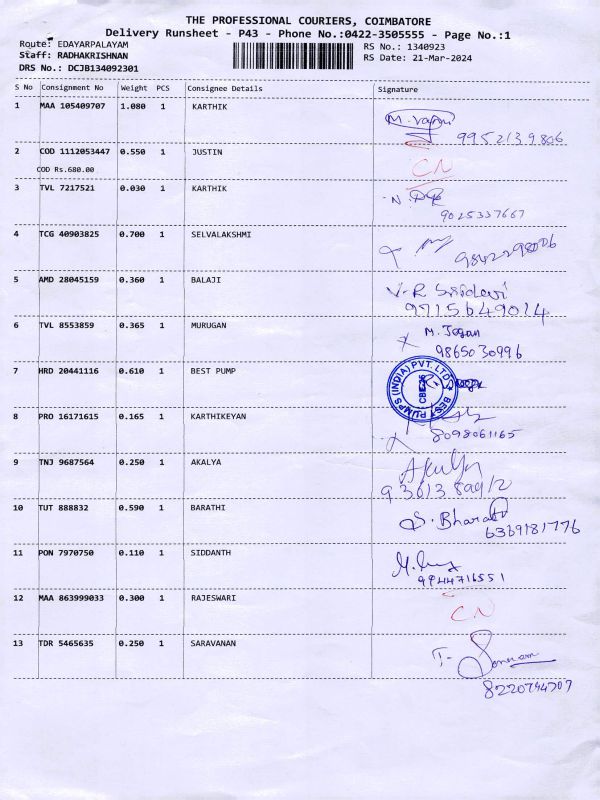 THE PROFESSIONAL COURIERS, COIMBATORE
Delivery Runsheet - P43 - Phone No.:0422-3505555 - Page No.:1
Route: EDAYARPALAYAM
RS No.: 1340923
Staff: RADHAKRISHNAN
RS Date: 21-Mar-2024
DRS No.: DCJB134092301
S No Consignment No Weight PCS Consignee Details Signature
1 MAA 105409707 1.080 1 KARTHIK
9952139806
2 COD 1112053447 0.550 1 JUSTIN CN
COD Rs.680.00
3 TVL 7217521 0.030 1 KARTHIK
9025337667
4 TCG 40903825 0.700 1 SELVALAKSHMI
9842298006
5 AMD 28045159 0.360 1 BALAJI V.R Sridevi
9715649014
6 TVL 8553859 0.365 1 MURUGAN M. Jegan
9865030996
7 HRD 20441116 0.610 1 BEST PUMP
BEST PUMPS (INDIA) PVT. LTD.
8 PRO 16171615 0.165 1 KARTHIKEYAN
8098061165
9 TNJ 9687564 0.250 1 AKALYA Akalya
10 TUT 888832 0.590 1 BARATHI S. Bharati
6369181776
11 PON 7970750 0.110 1 SIDDANTH
9944716551
12 MAA 863999033 0.300 1 RAJESWARI CN
13 TDR 5465635 0.250 1 SARAVANAN
8220744707